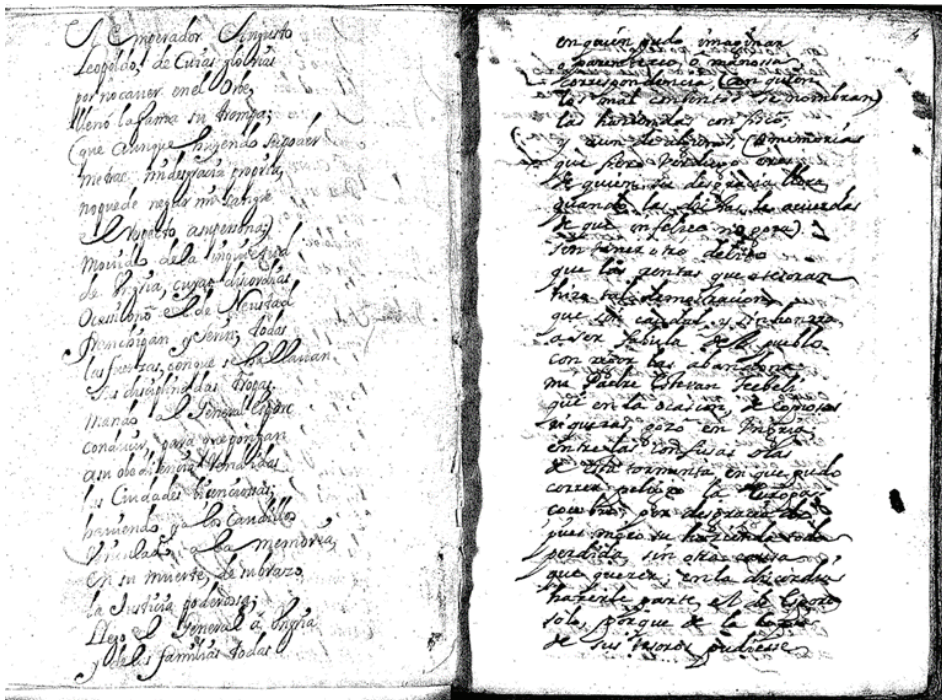 El Emperador Augusto
Leopoldo, de Cuias glorias
por no cauer en el Orbe,
lleno la fama su trompa;
(que aunque huyendo su poder
me trae mi desgracia propria,
no puede negar mi sangre
el respecto a su persona;)
mouido de la inquietud
de Vngria, cuyas discordias
Ocasiono el de Neustad
Franchigan y Serin; todas
las fuerzas, conque se hallauan
sus disciplinadas tropas,
mando al General Espork
conducir, para que pongan
a su obediencia rendidas
las Ciudades licenciosas;
hauiendo ya los caudillos
vinculado a la memoria,
en su muerte, de su brazo
la Justicia poderosa;
Llego el General a Vngria
y de las familias todas
en quien pudo imaginar
o parentezco, o mañossa
correspondencia, (con quien
los mal contentos se nombran)
las haziendas confisco;
y aun de alguno, (a memorias
que fiero verdugo eres
de quien su desgracia llora
quando las dichas le acuerdas
de que infelice no goza)
sin tener otro delito
que las rentas que atesoran
hizo tal demostracion,
que sin caudal y sin honrra
a ser fabula del pueblo
con rigor las abandona
mi Padre Esteuan Tekeli
que en la ocasion, de copiosas
riquezas, gozo en Vngria
entre las confusas olas
de esta tormenta en que pudo
correr peligro la Europa
pues miro su hazienda toda
perdida sin otra causa
que querer, en la discordia
hazerle parte, el de Espork
solo, porque de la
de sus tesoros pudiesse